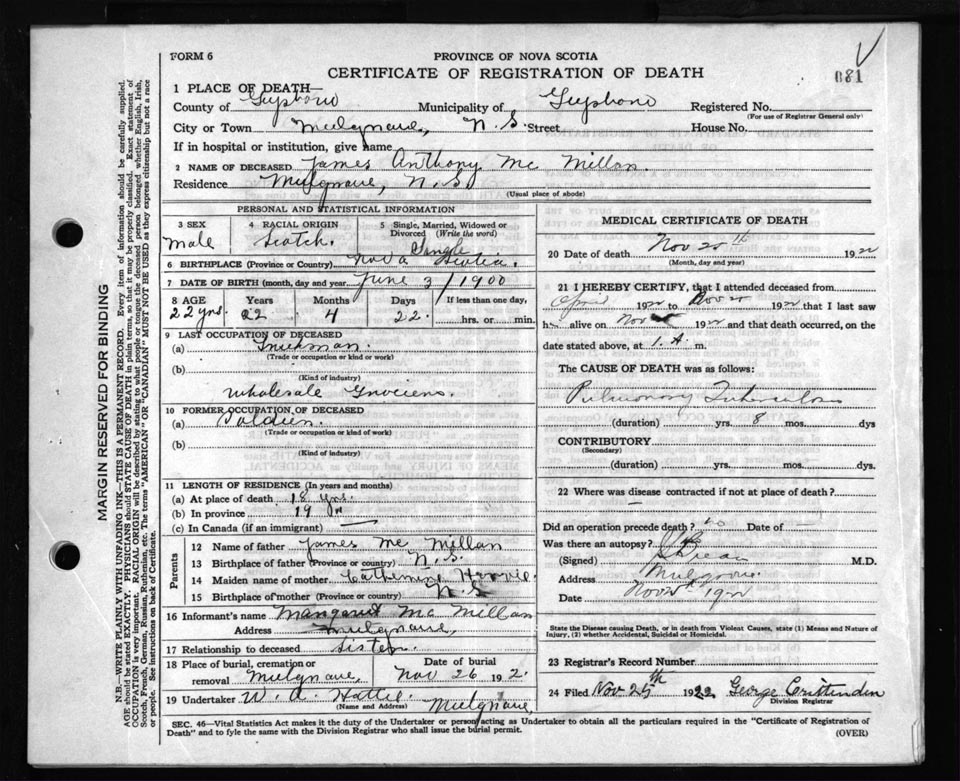 FORM 6
PROVINCE OF NOVA SCOTIA
CERTIFICATE OF REGISTRATION OF DEATH
081
1 PLACE OF DEATH—
County of Guysboro Municipality of Guysboro Registered No.
(For use of Registrar General only)
City or Town Mulgrave, N.S. Street House No.
If in hospital or institution, give name
2 NAME OF DECEASED James Anthony Mc Millan.
Residence Mulgrave, N.S.
(Usual place of abode)
PERSONAL AND STATISTICAL INFORMATION
3 SEX 4 RACIAL ORIGIN 5 Single, Married, Widowed or Divorced (Write the word)
Male Scotch. Single
6 BIRTHPLACE (Province or Country) Nova Scotia.
7 DATE OF BIRTH (month, day and year) June 3/1900
8 AGE Years Months Days If less than one day,
22 yrs. 22 4 22 hrs. or min.
9 LAST OCCUPATION OF DECEASED
(a) Truckman.
(Trade or occupation or kind or work)
(b)
(Kind of industry)
Wholesale Grocers.
10 FORMER OCCUPATION OF DECEASED
(a) Soldier.
(Trade or occupation or kind of work)
(b)
(Kind of industry)
11 LENGTH OF RESIDENCE (In years and months)
(a) At place of death 18 yrs.
(b) In province 19 yr
(c) In Canada (if an immigrant) —
Parents
12 Name of father James Mc Millan
13 Birthplace of father (Province or country) N.S.
14 Maiden name of mother Catherine
15 Birthplace of mother (Province or country) N.S
16 Informant's name Margaret Mc Millan
Address Mulgrave,
17 Relationship to deceased Sister.
18 Place of burial, cremation or removal Mulgrave, Date of burial Nov 26 192.
19 Undertaker W. A. Hattie. Mulgrave,
(Name and Address)
MEDICAL CERTIFICATE OF DEATH
20 Date of death Nov 25th 1922
(Month, day and year)
21 I HEREBY CERTIFY, that I attended deceased from
April 1922 to Nov 1922 that I last saw
h alive on Nov 1922 and that death occurred, on
date stated above, at 1. A. m.
The CAUSE OF DEATH was as follows:
Pulmonary Tuberculosis
(duration) yrs. 8 mos. dys
CONTRIBUTORY
(Secondary)
(duration) yrs. mos. dys.
22 Where was disease contracted if not at place of death?
—
Did an operation precede death? no Date of —
Was there an autopsy?
(Signed) M.D.
Address Mulgrave.
Date Nov 1922
State the Disease causing Death, or in death from Violent Causes, state (1) Means and Nature of Injury, (2) whether Accidental, Suicidal or Homicidal.
23 Registrar's Record Number
24 Filed Nov 25th 1922 George Crittenden
Division Registrar
SEC. 46—Vital Statistics Act makes it the duty of the Undertaker or person acting as Undertaker to obtain all the particulars required in the "Certificate of Registration of
Death" and to fyle the same with the Division Registrar who shall issue the burial permit.
(OVER)
MARGIN RESERVED FOR BINDING
N.B.—WRITE PLAINLY WITH UNFADING INK—THIS IS A PERMANENT RECORD. Every item of information should be carefully supplied.
AGE should be stated EXACTLY. PHYSICIANS should STATE CAUSE OF DEATH in plain terms, so that it may be properly classified. Exact statement of
OCCUPATION is very important. RACIAL ORIGIN will be described by stating to what people or tongue the deceased person belonged whether English, Irish,
Scotch, French, German, Russian, Ruthenian, etc. The terms "AMERICAN" OR "CANADIAN" MUST NOT BE USED as they express citizenship but not a race
or people. See instructions on back of Certificate.